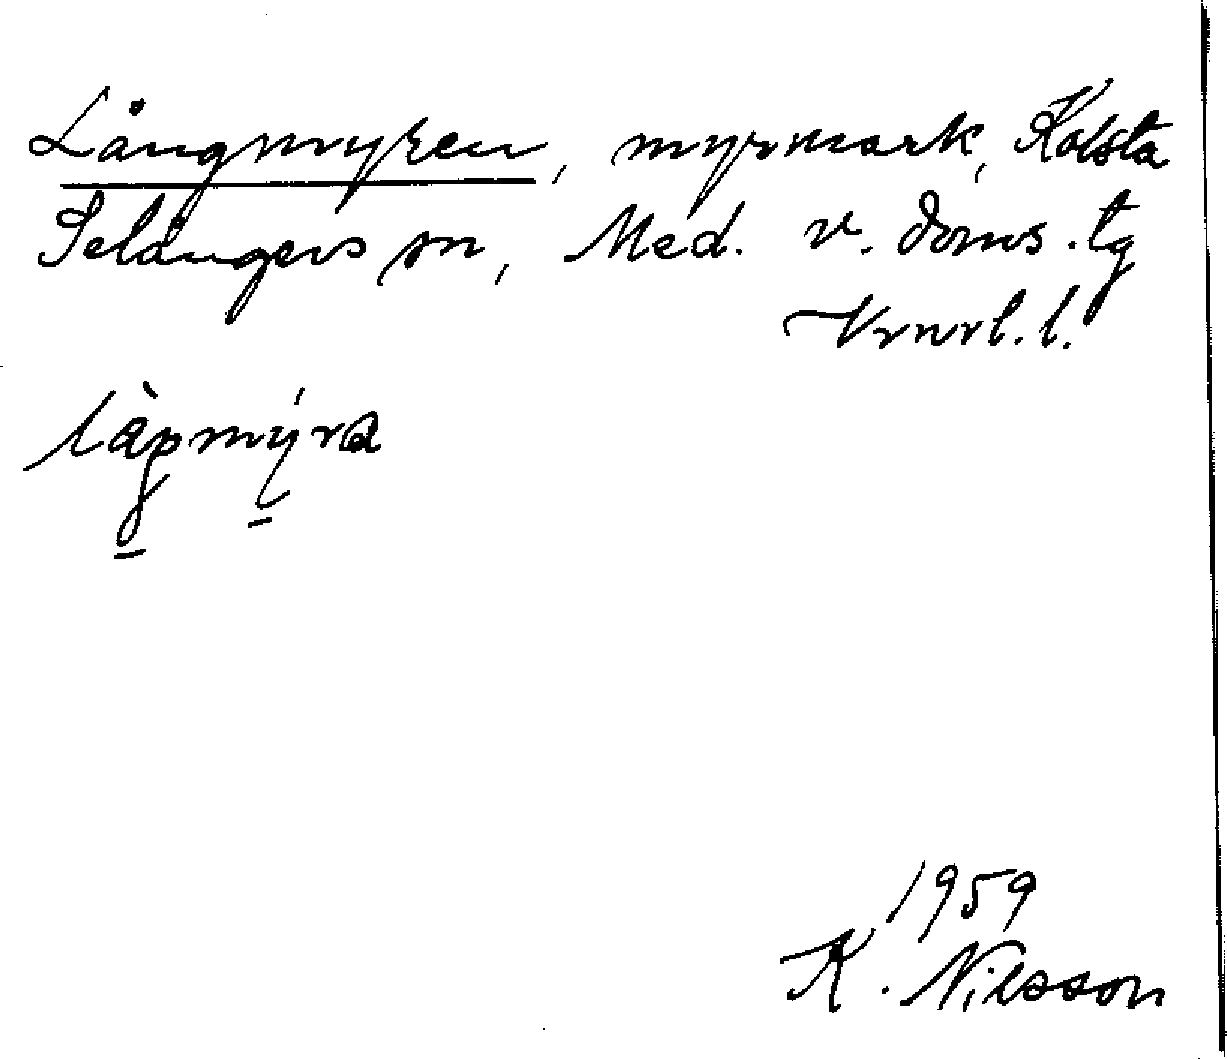 Långmyren, myrmark, Kolsta
Selångers sn, Med. v. doms. tg
Vrnrl. l.
1959
K. Nilsson